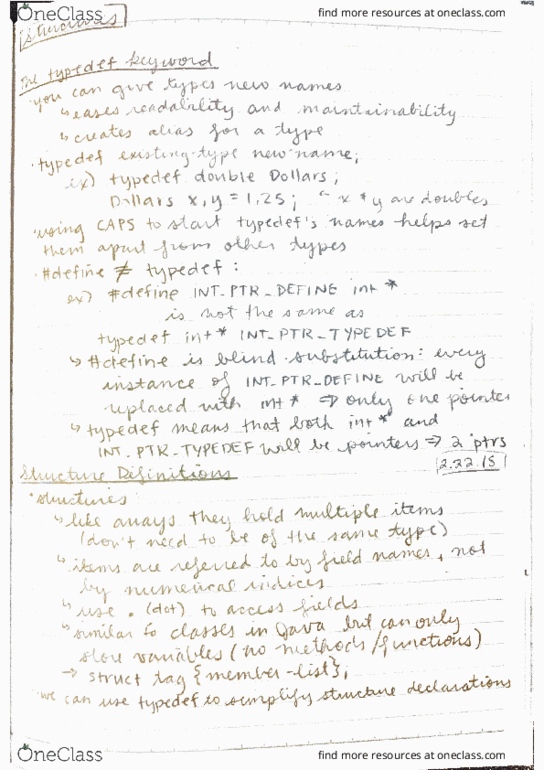 OneClass
find more resources at oneclass.com
Structures
The typedef keyword
·you can give types new names
↳ eases readability and maintainability
↳ creates alias for a type
·typedef existing-type new-name;
ex) typedef double Dollars;
Dollars x, y = 1.25; x & y are doubles
·using CAPS to start typedef's names helps set
them apart from other types
·#define ≠ typedef:
ex) #define INT_PTR_DEFINE int *
is not the same as
typedef int* INT_PTR_TYPEDEF
↳ #define is blind substitution: every
instance of INT_PTR_DEFINE will be
replaced with int* ⇒ only one pointer
↳ typedef means that both int* and
INT_PTR_TYPEDEF will be pointers ⇒ 2 ptrs
2.22.15
Structure Definitions
·structures:
↳ like arrays they hold multiple items
(don't need to be of the same type)
↳ items are referred to by field names, not
by numerical indices
↳ use . (dot) to access fields
↳ similar to classes in Java but can only
store variables (no methods/functions)
→ struct tag {member-list};
·we can use typedef to simplify structure declarations
OneClass
find more resources at oneclass.com